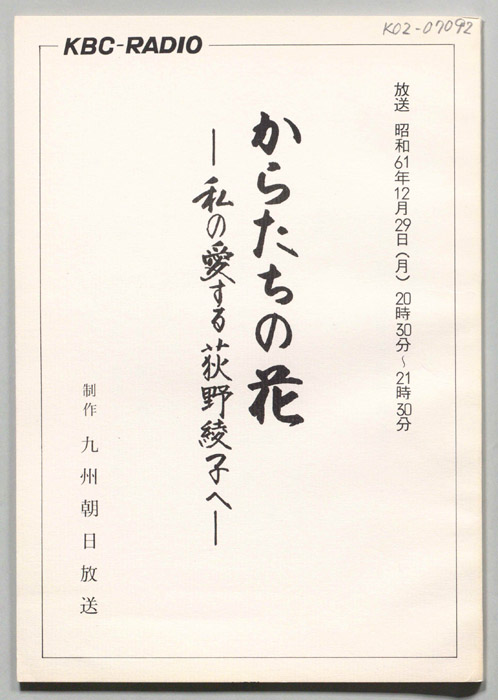 K02-07092
KBC-RADIO
放送 昭和61年12月29日(月) 20時30分～21時30分
からたちの花
―私の愛する荻野綾子へ―
制作 九州朝日放送